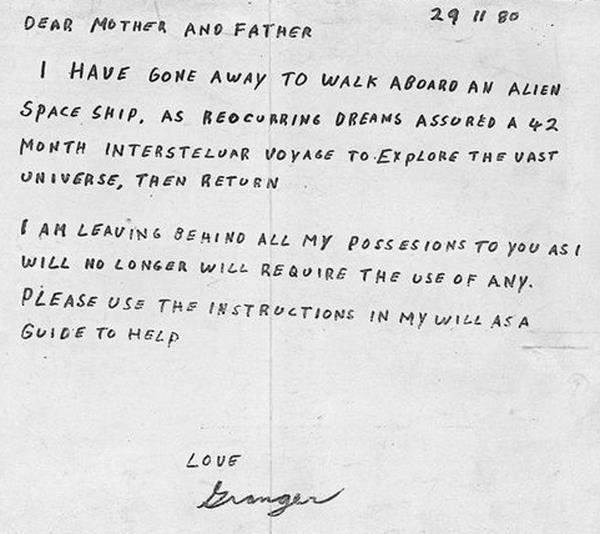 29 11 80
DEAR MOTHER AND FATHER
I HAVE GONE AWAY TO WALK ABOARD AN ALIEN
SPACE SHIP, AS REOCURRING DREAMS ASSURED A 42
MONTH INTERSTELUAR VOYAGE TO EXPLORE THE VAST
UNIVERSE, THEN RETURN
I AM LEAVING BEHIND ALL MY POSSESIONS TO YOU AS I
WILL NO LONGER WILL REQUIRE THE USE OF ANY.
PLEASE USE THE INSTRUCTIONS IN MY WILL AS A
GUIDE TO HELP
LOVE
Granger